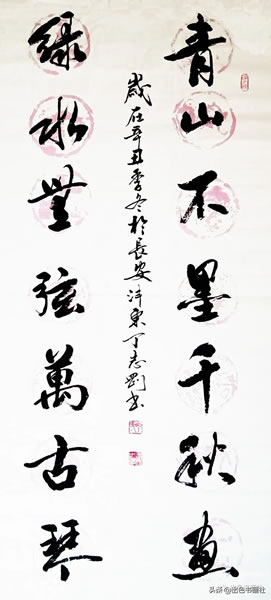 青山不墨千秋畫
歲在辛丑季冬於長安沣東丁志剛書
綠水無弦萬古琴
头条@出色书画社